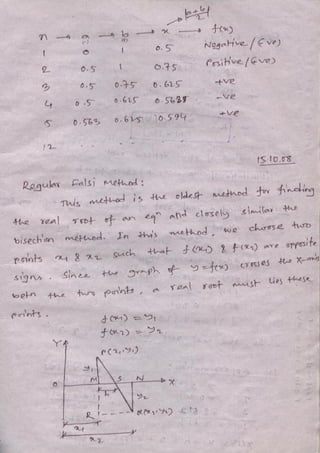 a+b/2
n → a → b → x → f(x)
(-) (+)
1 0 1 0.5 Negative / (-ve)
2 0.5 1 0.75 Positive / (+ve)
3 0.5 0.75 0.625 +ve
4 0.5 0.625 0.563 -ve
5 0.563 0.625 0.594 +ve
12.
15.10.08
Regular Falsi Method :
This method is the oldest method for finding
the real root of an eqn and closely similar the
bisection method. In this method, we choose two
points x1 & x2 such that f(x1) & f(x2) are opposite
signs. Since the graph of y = f(x) crosses the x-axis
betn the two points, a real root must lies these
points.
f(x1) = y1
f(x2) = y2
Y
P(x1,y1)
y1
O M S N X
h y2
R Q(x2,y2)
x1
x2